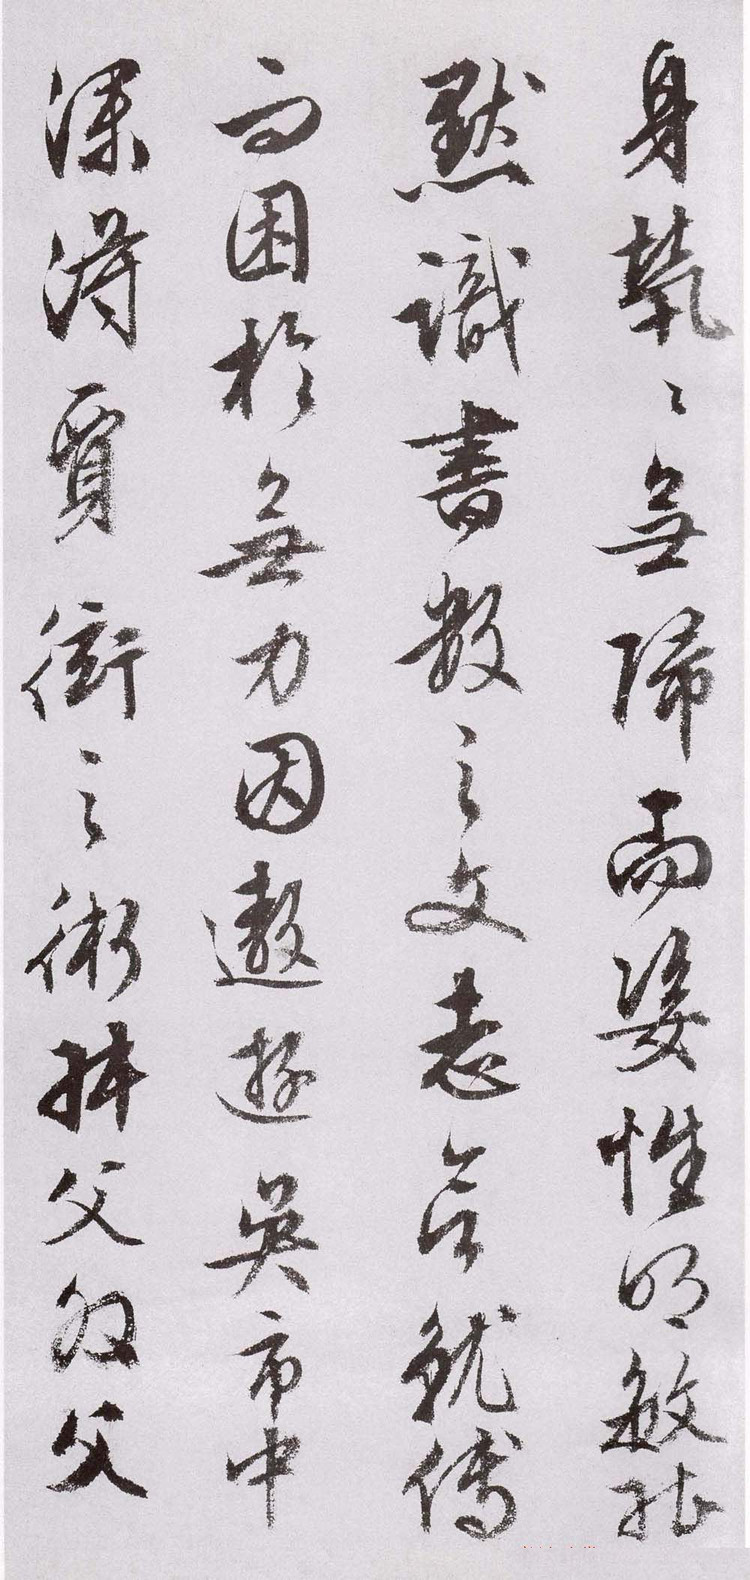 身煢〻無歸而姿性明敏能
默識書數之文志合就傅
而困於無力因遨遊吳市中
深得賈衒之術拜父叔父